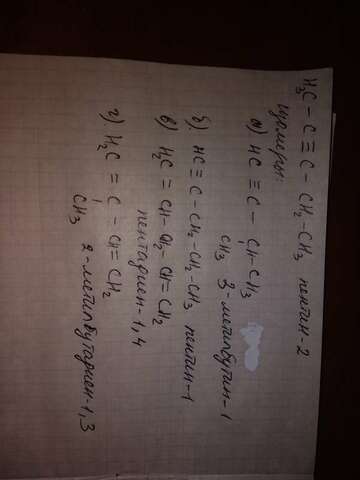 H₃C – C ≡ C – CH₂ – CH₃ пентин-2
Изомеры:
а) HC ≡ C – CH – CH₃
CH₃ 3-метилбутин-1
б) HC ≡ C – CH₂ – CH₂ – CH₃ пентин-1
в) H₂C = CH – CH₂ – CH = CH₂
пентадиен-1,4
г) H₂C = C – CH = CH₂
CH₃ 2-метилбутадиен-1,3